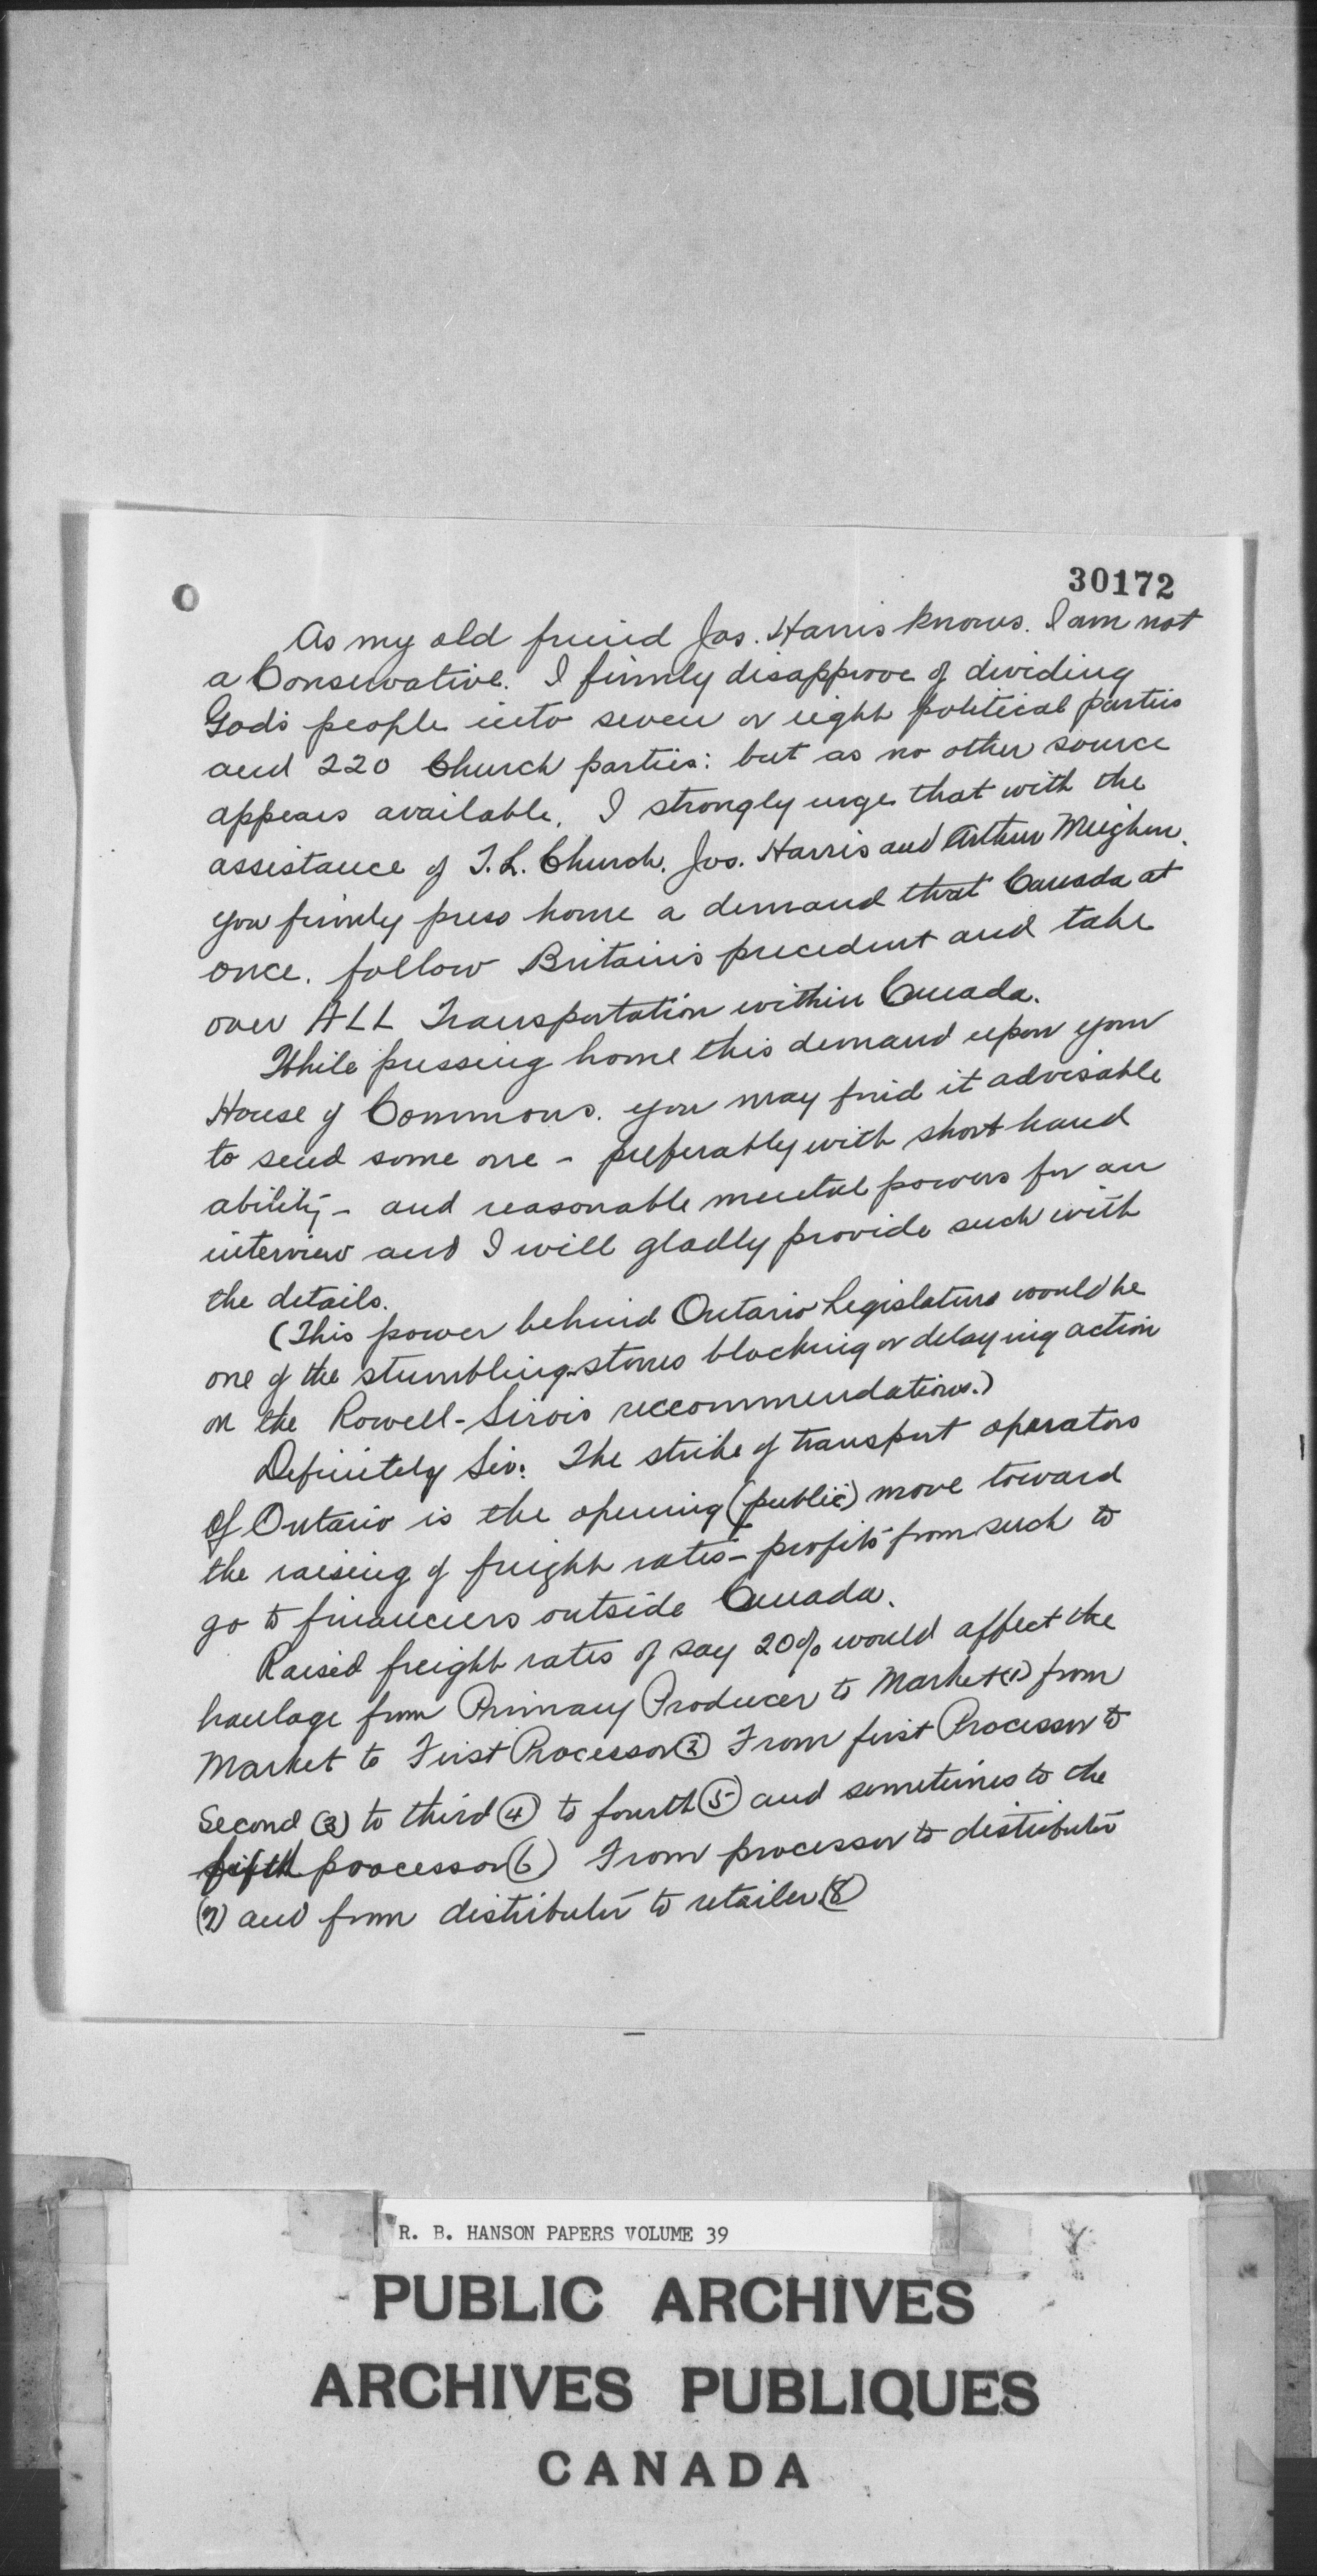 30172
As my old friend Jas. Harris knows. I am not
a Conservative. I firmly disapprove of dividing
God's people into seven or eight political parties
and 220 Church parties: but as no other source
appears available, I strongly urge that with the
assistance of T. L. Church, Jos. Harris and Arthur Meighen.
you firmly press home a demand that Canada at
once. follow Britain's precedent and take
over ALL Transportation within Canada.
While pressing home this demand upon your
House of Commons. you may find it advisable
to send some one - preferably with short hand
ability - and reasonable mental powers for an
interview and I will gladly provide such with
the details.
(This power behind Ontario Legislature would be
one of the stumbling-stones blocking or delaying action
on the Rowell-Sirois reccommendations.)
Definitely Sir: The strike of transport operators
Of Ontario is the opening (public) move toward
the raising of freight rates - profits from such to
go to financiers outside Canada.
Raised freight rates of say 20% would affect the
haulage from Primary Producer to Market (1) from
Market to First Processor (2) From first Processor to
Second (3) to third (4) to fourth (5) and sometimes to the
fifth processor (6) From processor to distributor
(7) and from distributor to retailer (8)
R. B. HANSON PAPERS VOLUME 39
PUBLIC ARCHIVES
ARCHIVES PUBLIQUES
CANADA